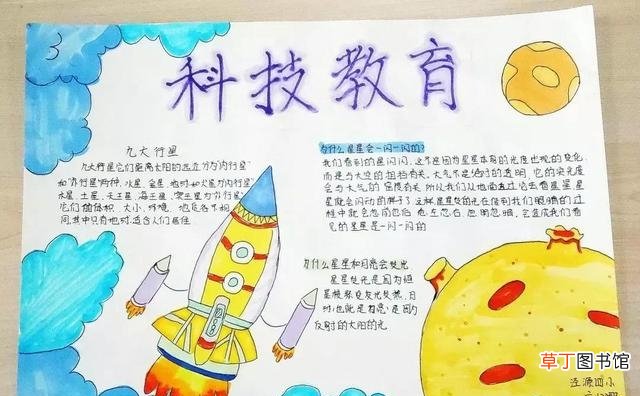 科技教育
九大行星
九大行星它们距离太阳的远近分为"内行星"
和"外行星"两种,水星、金星、地球、火星为"内行星"
木星、土星、天王星、海王星、冥王星为"外行星"
它们的体积、大小、环境、地质各不相
同,其中只有地球适合人们居住
为什么星星会一闪一闪的?
我们看到的星闪闪,这不是因为星星本身的光度出现的变化
而是与大气的遮挡有关。大气不是绝对的透明,它的透光度
会与大气的密度有关所以我们从地面透过它去看星星 星
星就会闪动的样子了这样星星发的光在传到我们眼睛的过
程中就会忽前忽后 忽左忽右 忽明忽暗,它造成我们看
见的星星是一闪一闪的
为什么星星和月亮会发光
星星发光是因为恒
月
球
反射的太阳的光
涟源四小
草丁图书馆